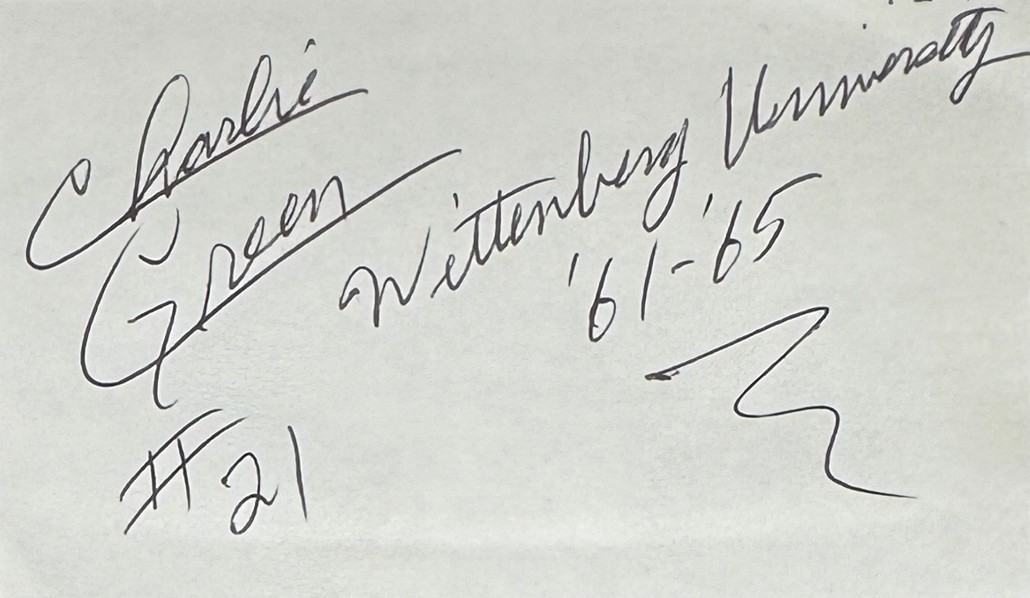 Charlie
Green
#21
Wittenberg University
'61-'65